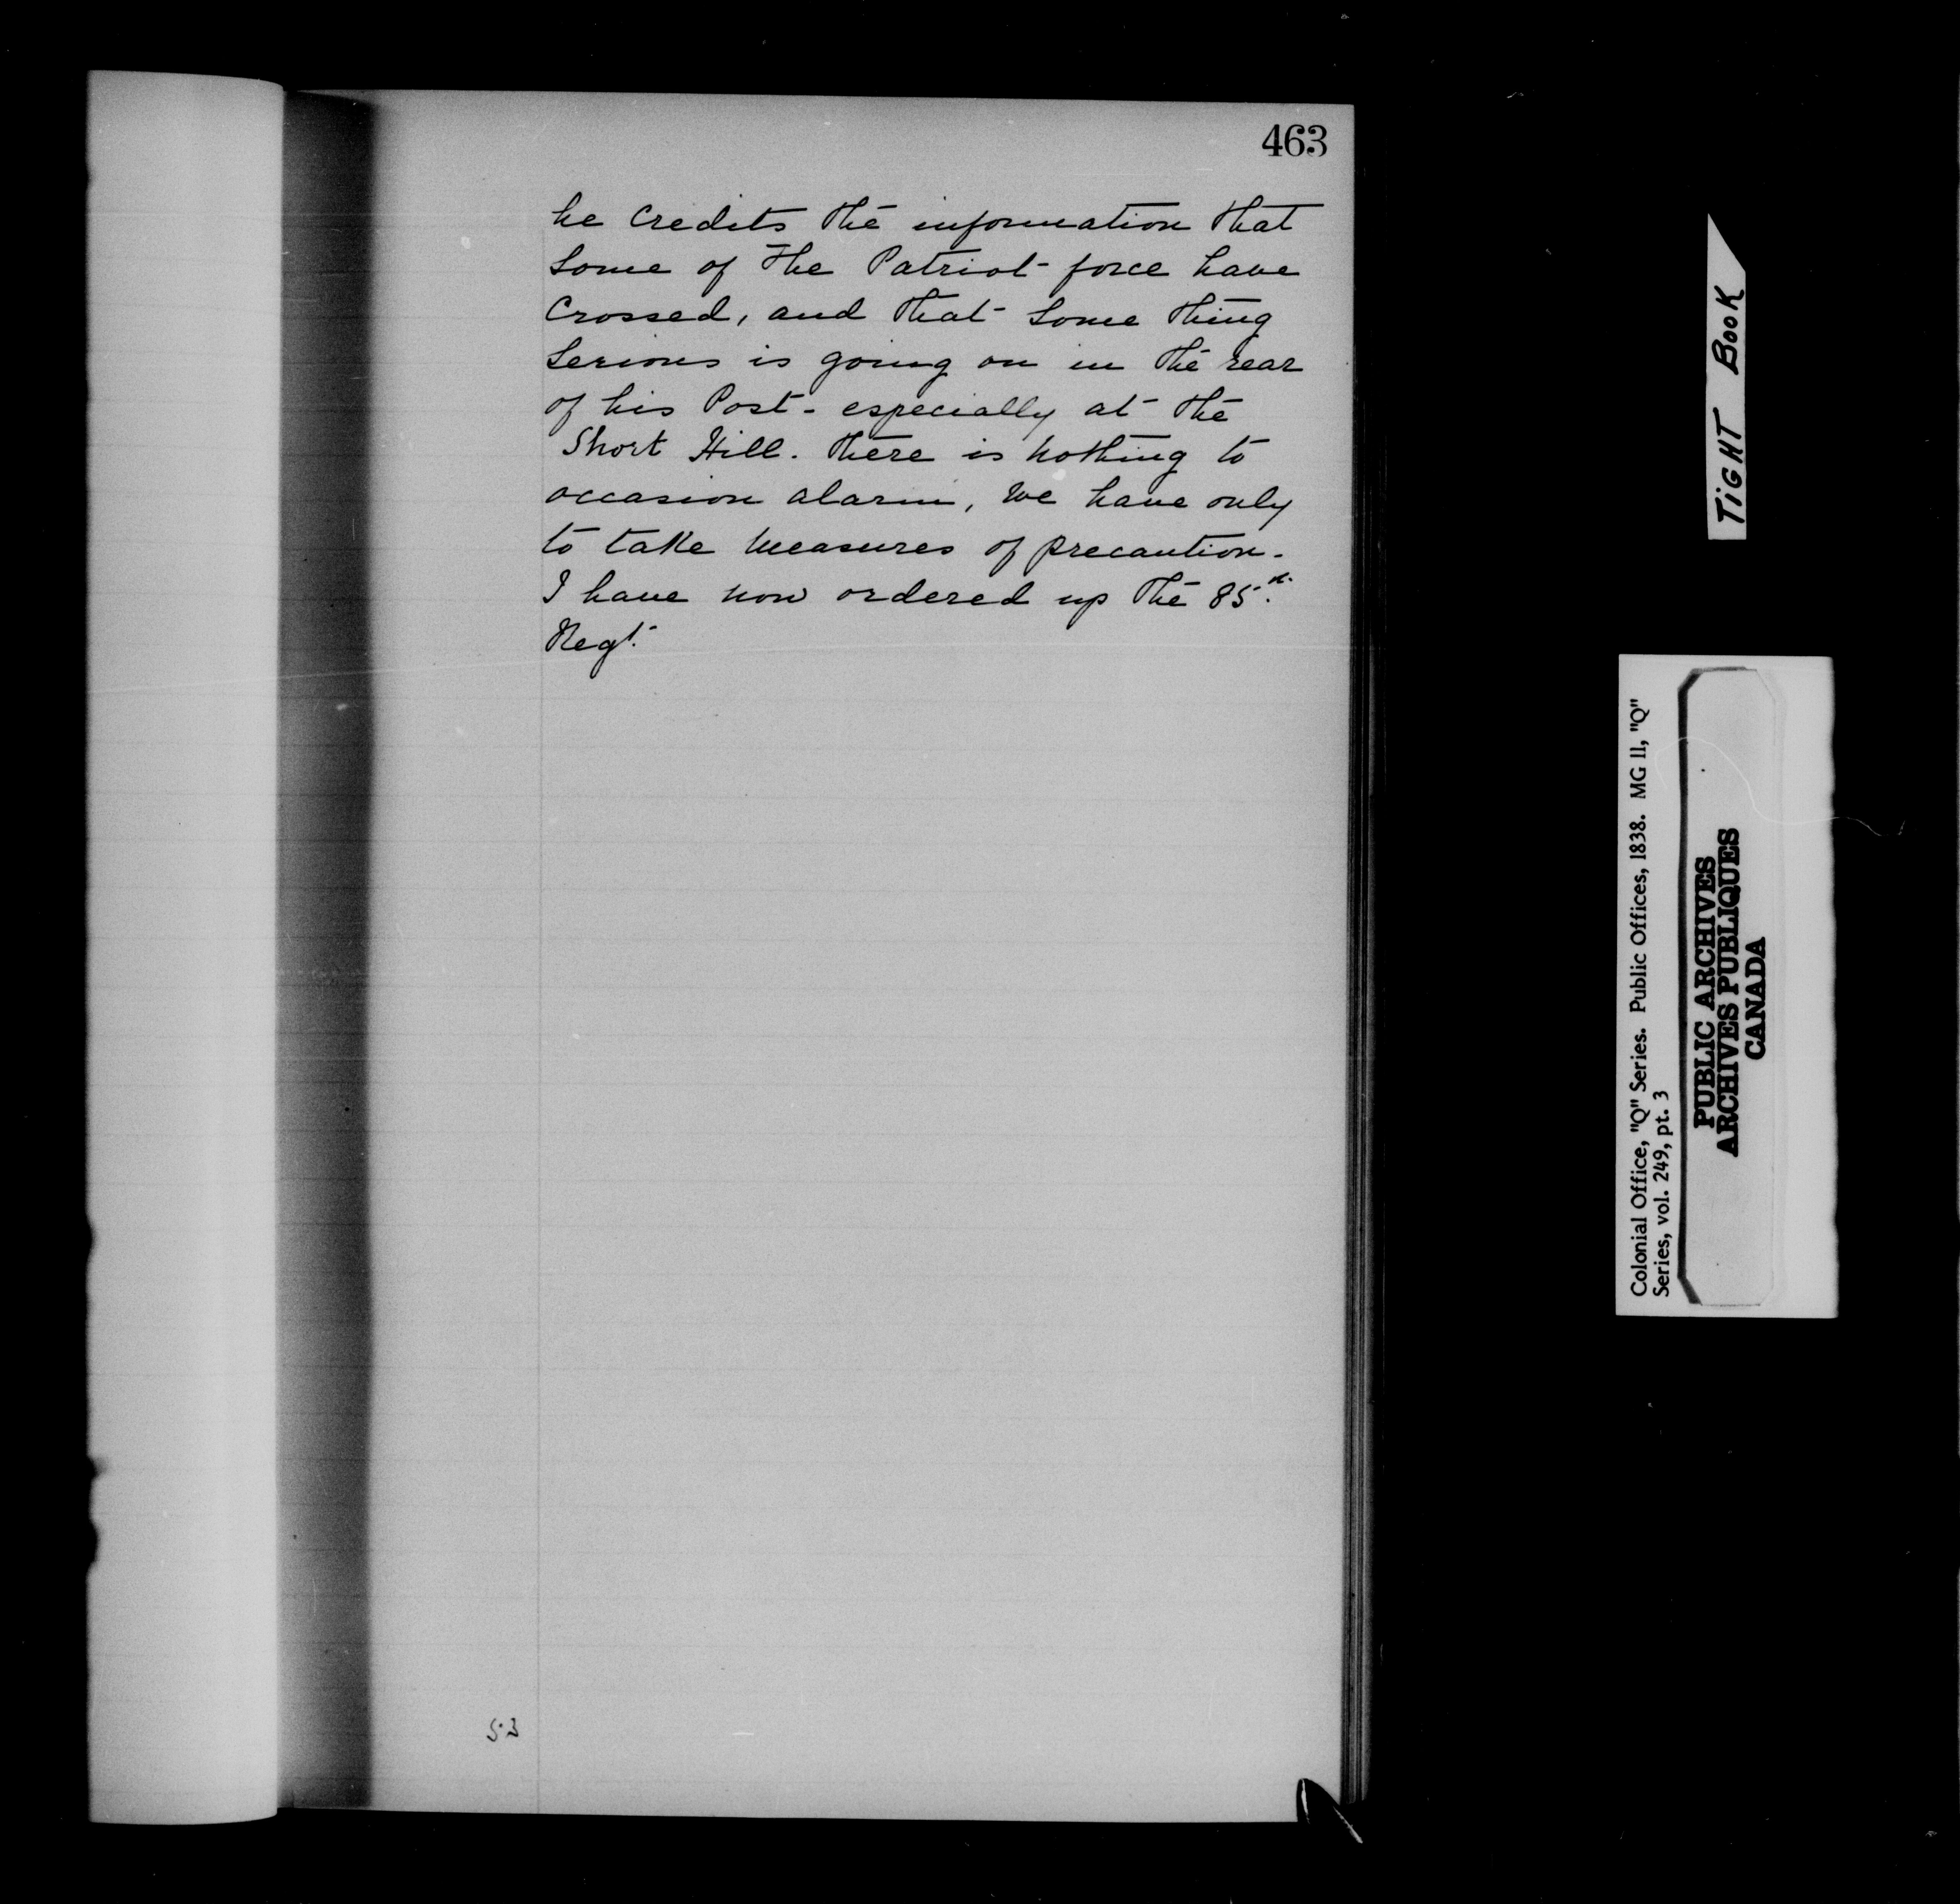 463
he credits the information that
some of the Patriot force have
crossed, and that some thing
serious is going on in the rear
of his Post - especially at the
Short Hill. There is nothing to
occasion alarm, we have only
to take measures of precaution.
I have now ordered up the 85th.
Regt.
53
TIGHT BOOK
Colonial Office, "Q" Series. Public Offices, 1838. MG 11, "Q"
Series, vol. 249, pt. 3
PUBLIC ARCHIVES
ARCHIVES PUBLIQUES
CANADA